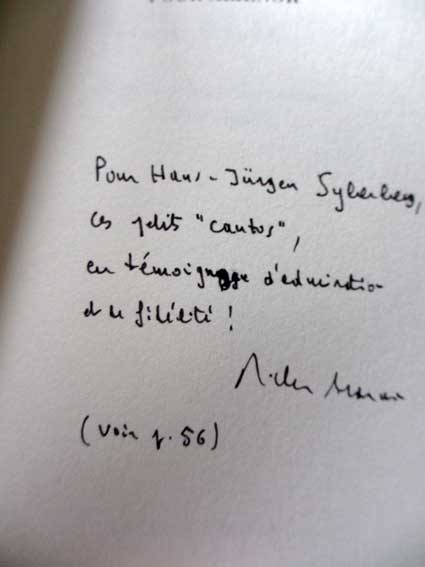 Pour Hans-Jürgen Syberberg,
ces petits "cantos",
en témoignage d'admiration
et de fidélité !
(voir p. 56)